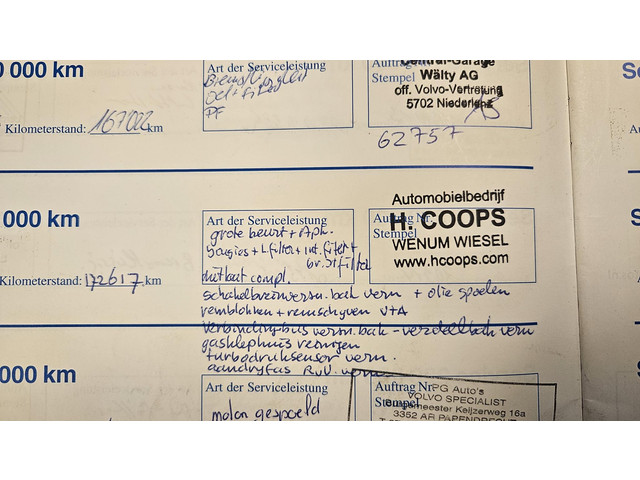 0 000 km
Art der Serviceleistung
Kilometerstand: 167002 km
PF
Auftrag
Stempel
Central-Garage
Wälty AG
off. Volvo-Vertretung
5702 Niederlenz
62757
000 km
Kilometerstand: 172617 km
Art der Serviceleistung
grote beurt + Apk.
bougies + L filter + int. filter +
br. st filter
compl.
Auftrag Nr.
Stempel
Automobielbedrijf
H. COOPS
WENUM WIESEL
www.hcoops.com
vern + olie spoelen
remblokken + remschijven V+A
vern. bak - verdeelbak vern
gasklephuis reinigen
turbodruksensor vern.
aandryfas R.V. vern
000 km
Art der Serviceleistung
motor gespoeld
Auftrag Nr.
Stempel
PG Auto's
VOLVO SPECIALIST
Keijzerweg 16a
3352 AR PAPENDRECHT